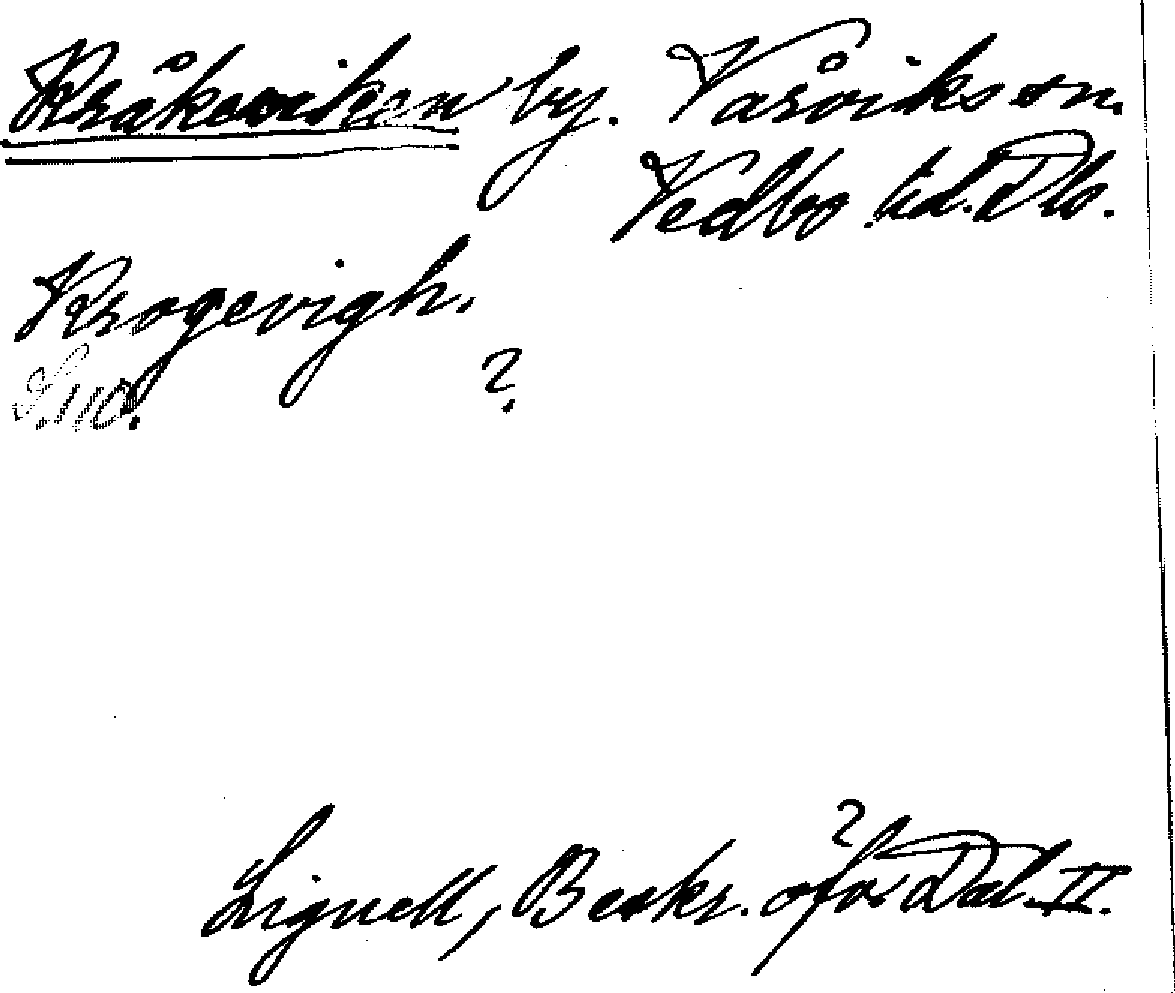 Kråkeviken by. Vårviks sn.
Vedbo hd. Dls.
Krogevigh.
S. 110. ?
Lignell, Beskr. öfver Dal. II.